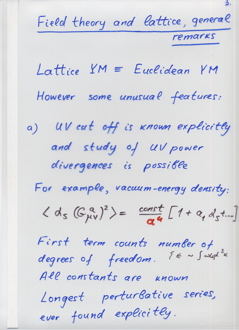 3.
Field theory and lattice, general
remarks
Lattice YM ≡ Euclidean YM
However some unusual features:
a) UV cut off is known explicitly
and study of UV power
divergences is possible
For example, vacuum-energy density:
< αs (Gᵃμν)² > = const/a⁴ [1 + a₁ αs + ...]
First term counts number of
degrees of freedom.
All constants are known
Longest perturbative series,
ever found explicitly.